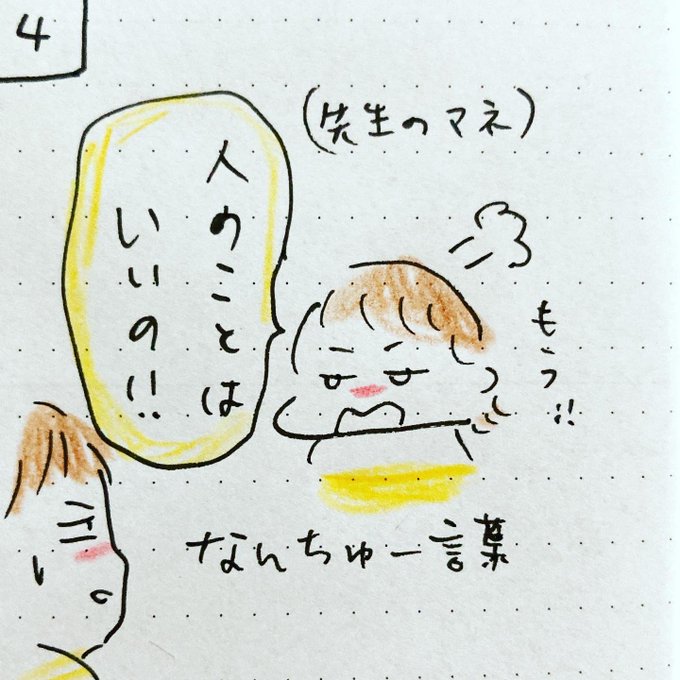 4
(先生のマネ)
人のことは
いいの!!
もうっ!!
なんちゅー言葉